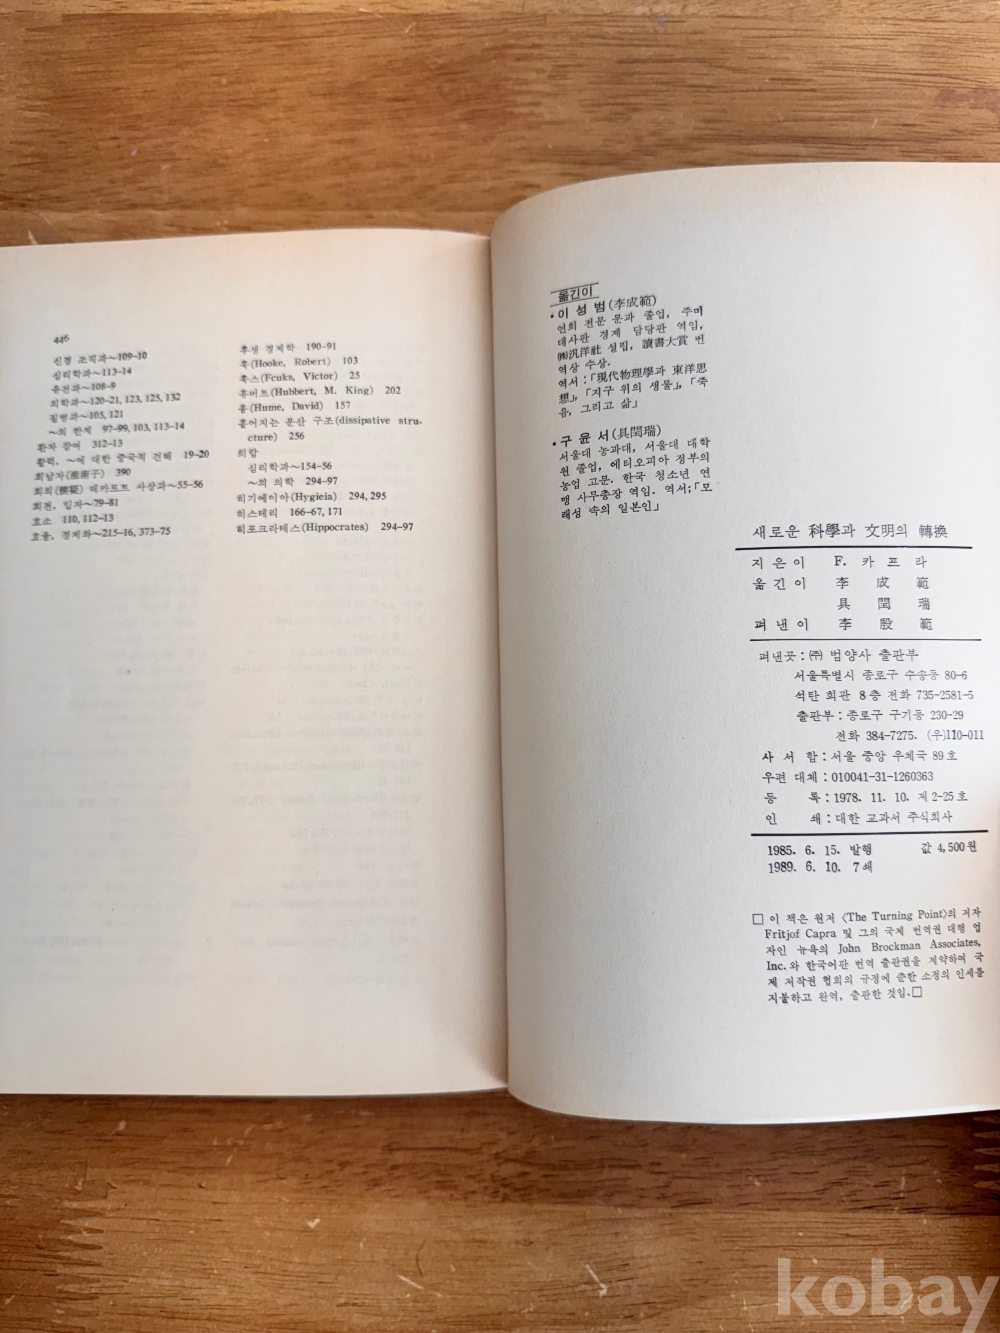 446
신경 조직과～109-10
심리학과～113-14
유전과～108-9
의학과～120-21, 123, 125, 132
질병과～105, 121
～의 한계 97-99, 103, 113-14
환자 참여 312-13
활력, ～에 대한 중국적 견해 19-20
회남자(淮南子) 390
회의(懷疑) 데카르트 사상과～55-56
회전, 입자～79-81
효소 110, 112-13
효율, 경제와～215-16, 373-75
후생 경제학 190-91
훅(Hooke, Robert) 103
훅스(Fcuks, Victor) 25
휴버트(Hubbert, M. King) 202
흄(Hume, David) 157
흩어지는 분산 구조(dissipative stru-
cture) 256
희랍
심리학과～154-56
～의 의학 294-97
히기에이아(Hygieia) 294, 295
히스테리 166-67, 171
히포크라테스(Hippocrates) 294-97
옮긴이
• 이 성 범(李成範)
연희 전문 문과 졸업, 주미
대사관 경제 담당관 역임,
㈱汎洋社 설립, 讀書大賞 번
역상 수상.
역서 :「現代物理學과 東洋思
想」,「지구 위의 생물」,「죽
음, 그리고 삶」
• 구 윤 서(具閏瑞)
서울대 농과대, 서울대 대학
원 졸업, 에티오피아 정부의
농업 고문. 한국 청소년 연
맹 사무총장 역임. 역서;「모
래성 속의 일본인」
새로운 科學과 文明의 轉換
지 은 이 F. 카 프 라
옮 긴 이 李 成 範
具 閏 瑞
펴 낸 이 李 殷 範
펴낸곳 : ㈜ 범양사 출판부
서울특별시 종로구 수송동 80-6
석탄 회관 8층 전화 735-2581-5
출판부 : 종로구 구기동 230-29
전화 384-7275. (우)110-011
사 서 함 : 서울 중앙 우체국 89호
우편 대체 : 010041-31-1260363
등 록 : 1978. 11. 10. 제 2-25호
인 쇄 : 대한 교과서 주식회사
1985. 6. 15. 발행 값 4,500원
1989. 6. 10. 7쇄
□ 이 책은 원저 〈The Turning Point〉의 저자
Fritjof Capra 및 그의 국제 번역권 대행 업
자인 뉴욕의 John Brockman Associates,
Inc.와 한국어판 번역 출판권을 계약하여 국
제 저작권 협회의 규정에 준한 소정의 인세를
지불하고 완역, 출판한 것임.□
kobay